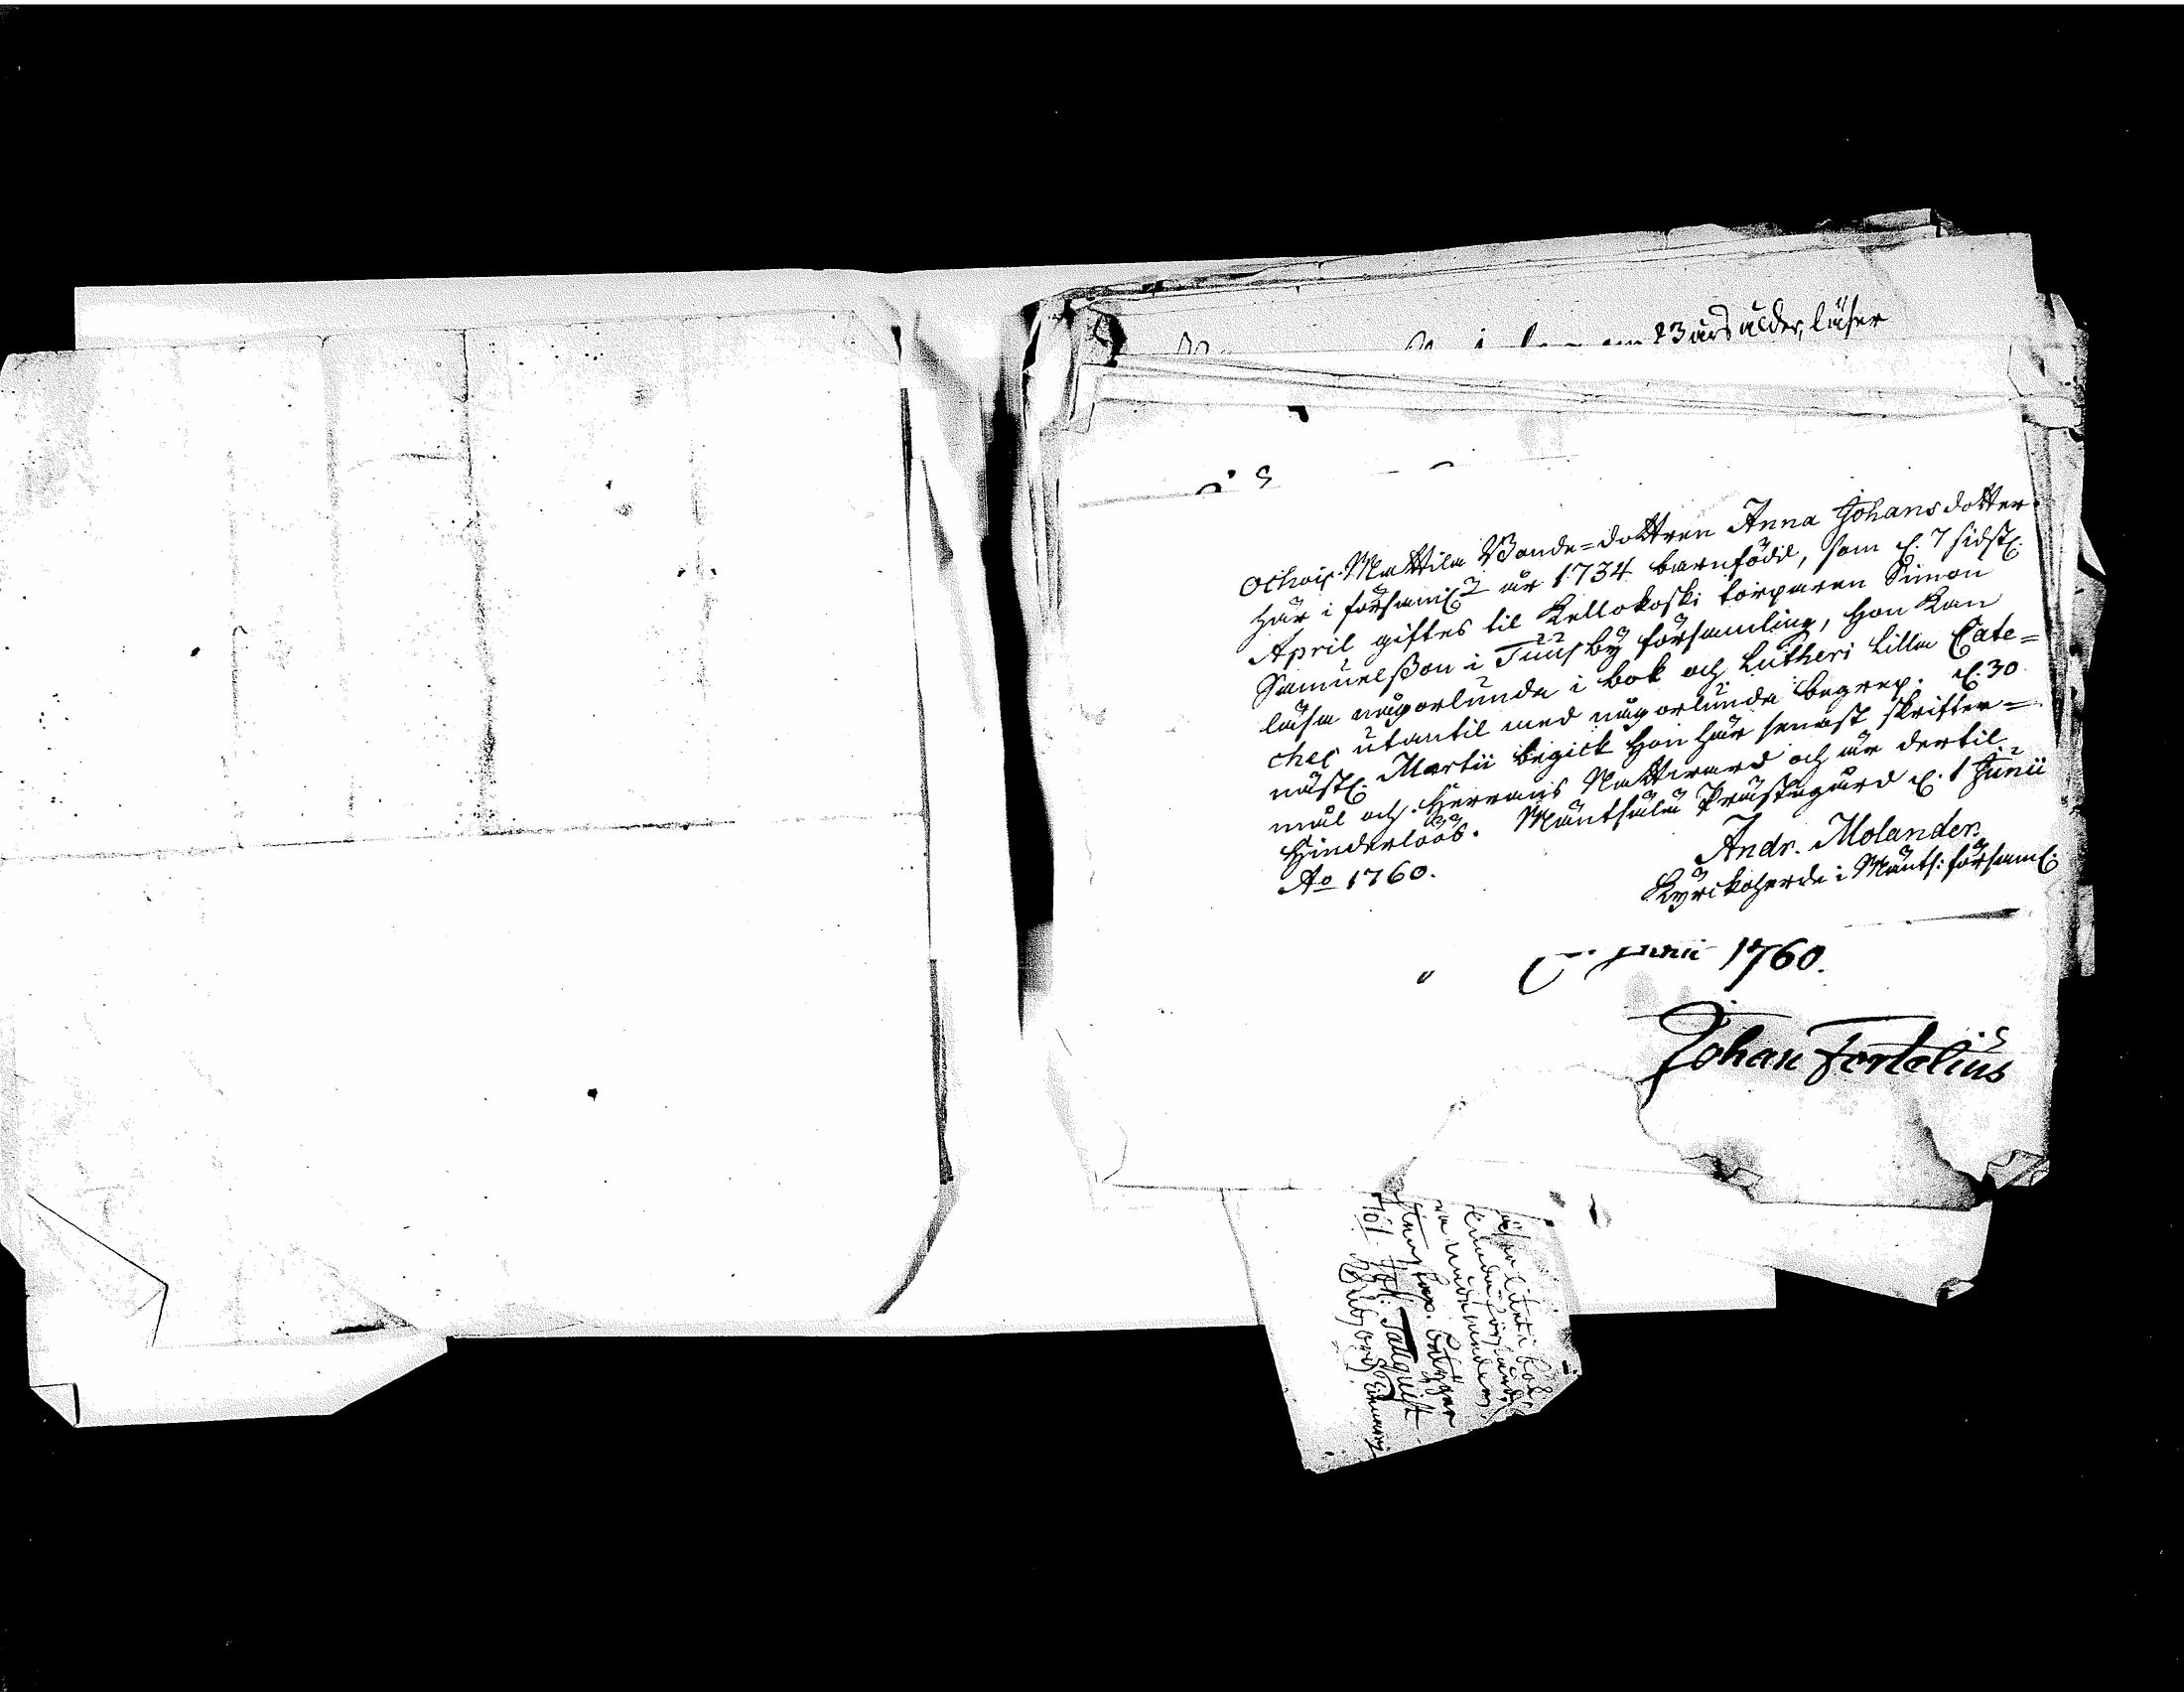 23 års ålder, läser
Ochois Mattila Bonde=dottren Anna Johansdotter
här i församl. år 1734 barnfödd, som d. 7 sidstl.
April giftes til Kellokoski torparen Simon
Samuelsson i Tuusby församling, hon kan
läsa någorlunda i bok och Lutheri lilla Cate=
ches utantil med någorlunda begrep. d. 30
nästl. Martii begick hon här senast skrifter=
mål och Herrans Nattward och är dertil
hinderlöös. Mäntsälä Prästegård d. 1 Junii
Ao 1760.
Andr. Molander
Kyrckoherde i Mänts: församl:
Junii 1760.
Johan Fortelius
läser litet i bok
1761 Joh: Tallquist